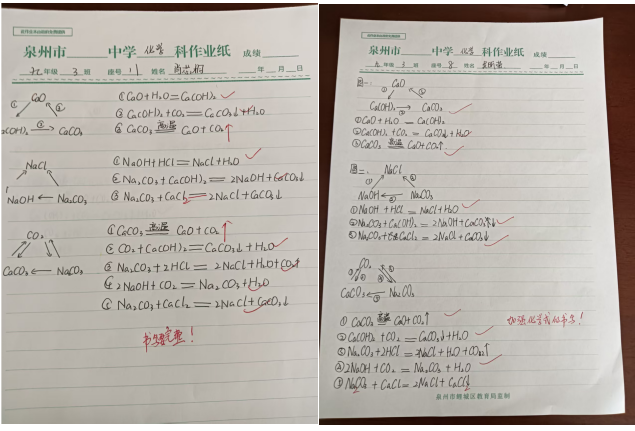 泉州市 中学 化学 科作业纸 成绩
九 年级 3 班 座号 11 姓名 年 月 日
CaO
① ②
Ca(OH)₂ ③→ CaCO₃
①CaO+H₂O=Ca(OH)₂
②Ca(OH)₂+CO₂=CaCO₃↓+H₂O
③CaCO₃ 高温 CaO+CO₂↑
NaCl
NaOH ← Na₂CO₃
①NaOH+HCl=NaCl+H₂O
②Na₂CO₃+Ca(OH)₂=2NaOH+CaCO₃↓
③Na₂CO₃+CaCl₂=2NaCl+CaCO₃↓
CO₂
CaCO₃ ← Na₂CO₃
①CaCO₃ 高温 CaO+CO₂↑
②CO₂+Ca(OH)₂=CaCO₃↓+H₂O
③Na₂CO₃+2HCl=2NaCl+H₂O+CO₂↑
④2NaOH+CO₂=Na₂CO₃+H₂O
⑤Na₂CO₃+CaCl₂=2NaCl+CaCO₃↓
泉州市 中学 化学 科作业纸 成绩
九 年级 3 班 座号 8 姓名 年 月 日
图一:
CaO
① ②
Ca(OH)₂ → CaCO₃
①CaO+H₂O=Ca(OH)₂
②Ca(OH)₂+CO₂=CaCO₃↓+H₂O
③CaCO₃ 高温 CaO+CO₂↑
图二:
NaCl
① ③
NaOH ← Na₂CO₃
①NaOH+HCl=NaCl+H₂O
②Na₂CO₃+Ca(OH)₂=2NaOH+CaCO₃↓
③Na₂CO₃+CaCl₂=2NaCl+CaCO₃↓
CO₂
CaCO₃ ← Na₂CO₃
①CaCO₃ 高温 CaO+CO₂↑
加强化学式的书写!
②Ca(OH)₂+CO₂=CaCO₃↓+H₂O
③Na₂CO₃+2HCl=2NaCl+H₂O+CO₂↑
④2NaOH+CO₂=Na₂CO₃+H₂O
⑤Na₂CO₃+CaCl=2NaCl+CaCl↓
泉州市鲤城区教育局监制